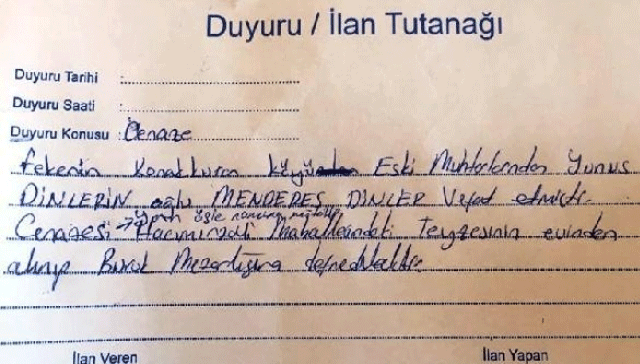 Duyuru / İlan Tutanağı
Duyuru Tarihi :
Duyuru Saati :
Duyuru Konusu : Cenaze
Fekenin Konakkuran köyünden Eski Muhtarlarından Yunus
DİNLERİN oğlu MENDERES DİNLER Vefat etmiştir.
Yarın öğle namazına müteakip
Cenazesi → Mahallesindeki Teyzesinin evinden
alınıp Buruk Mezarlığına defnedilecektir.
İlan Veren İlan Yapan